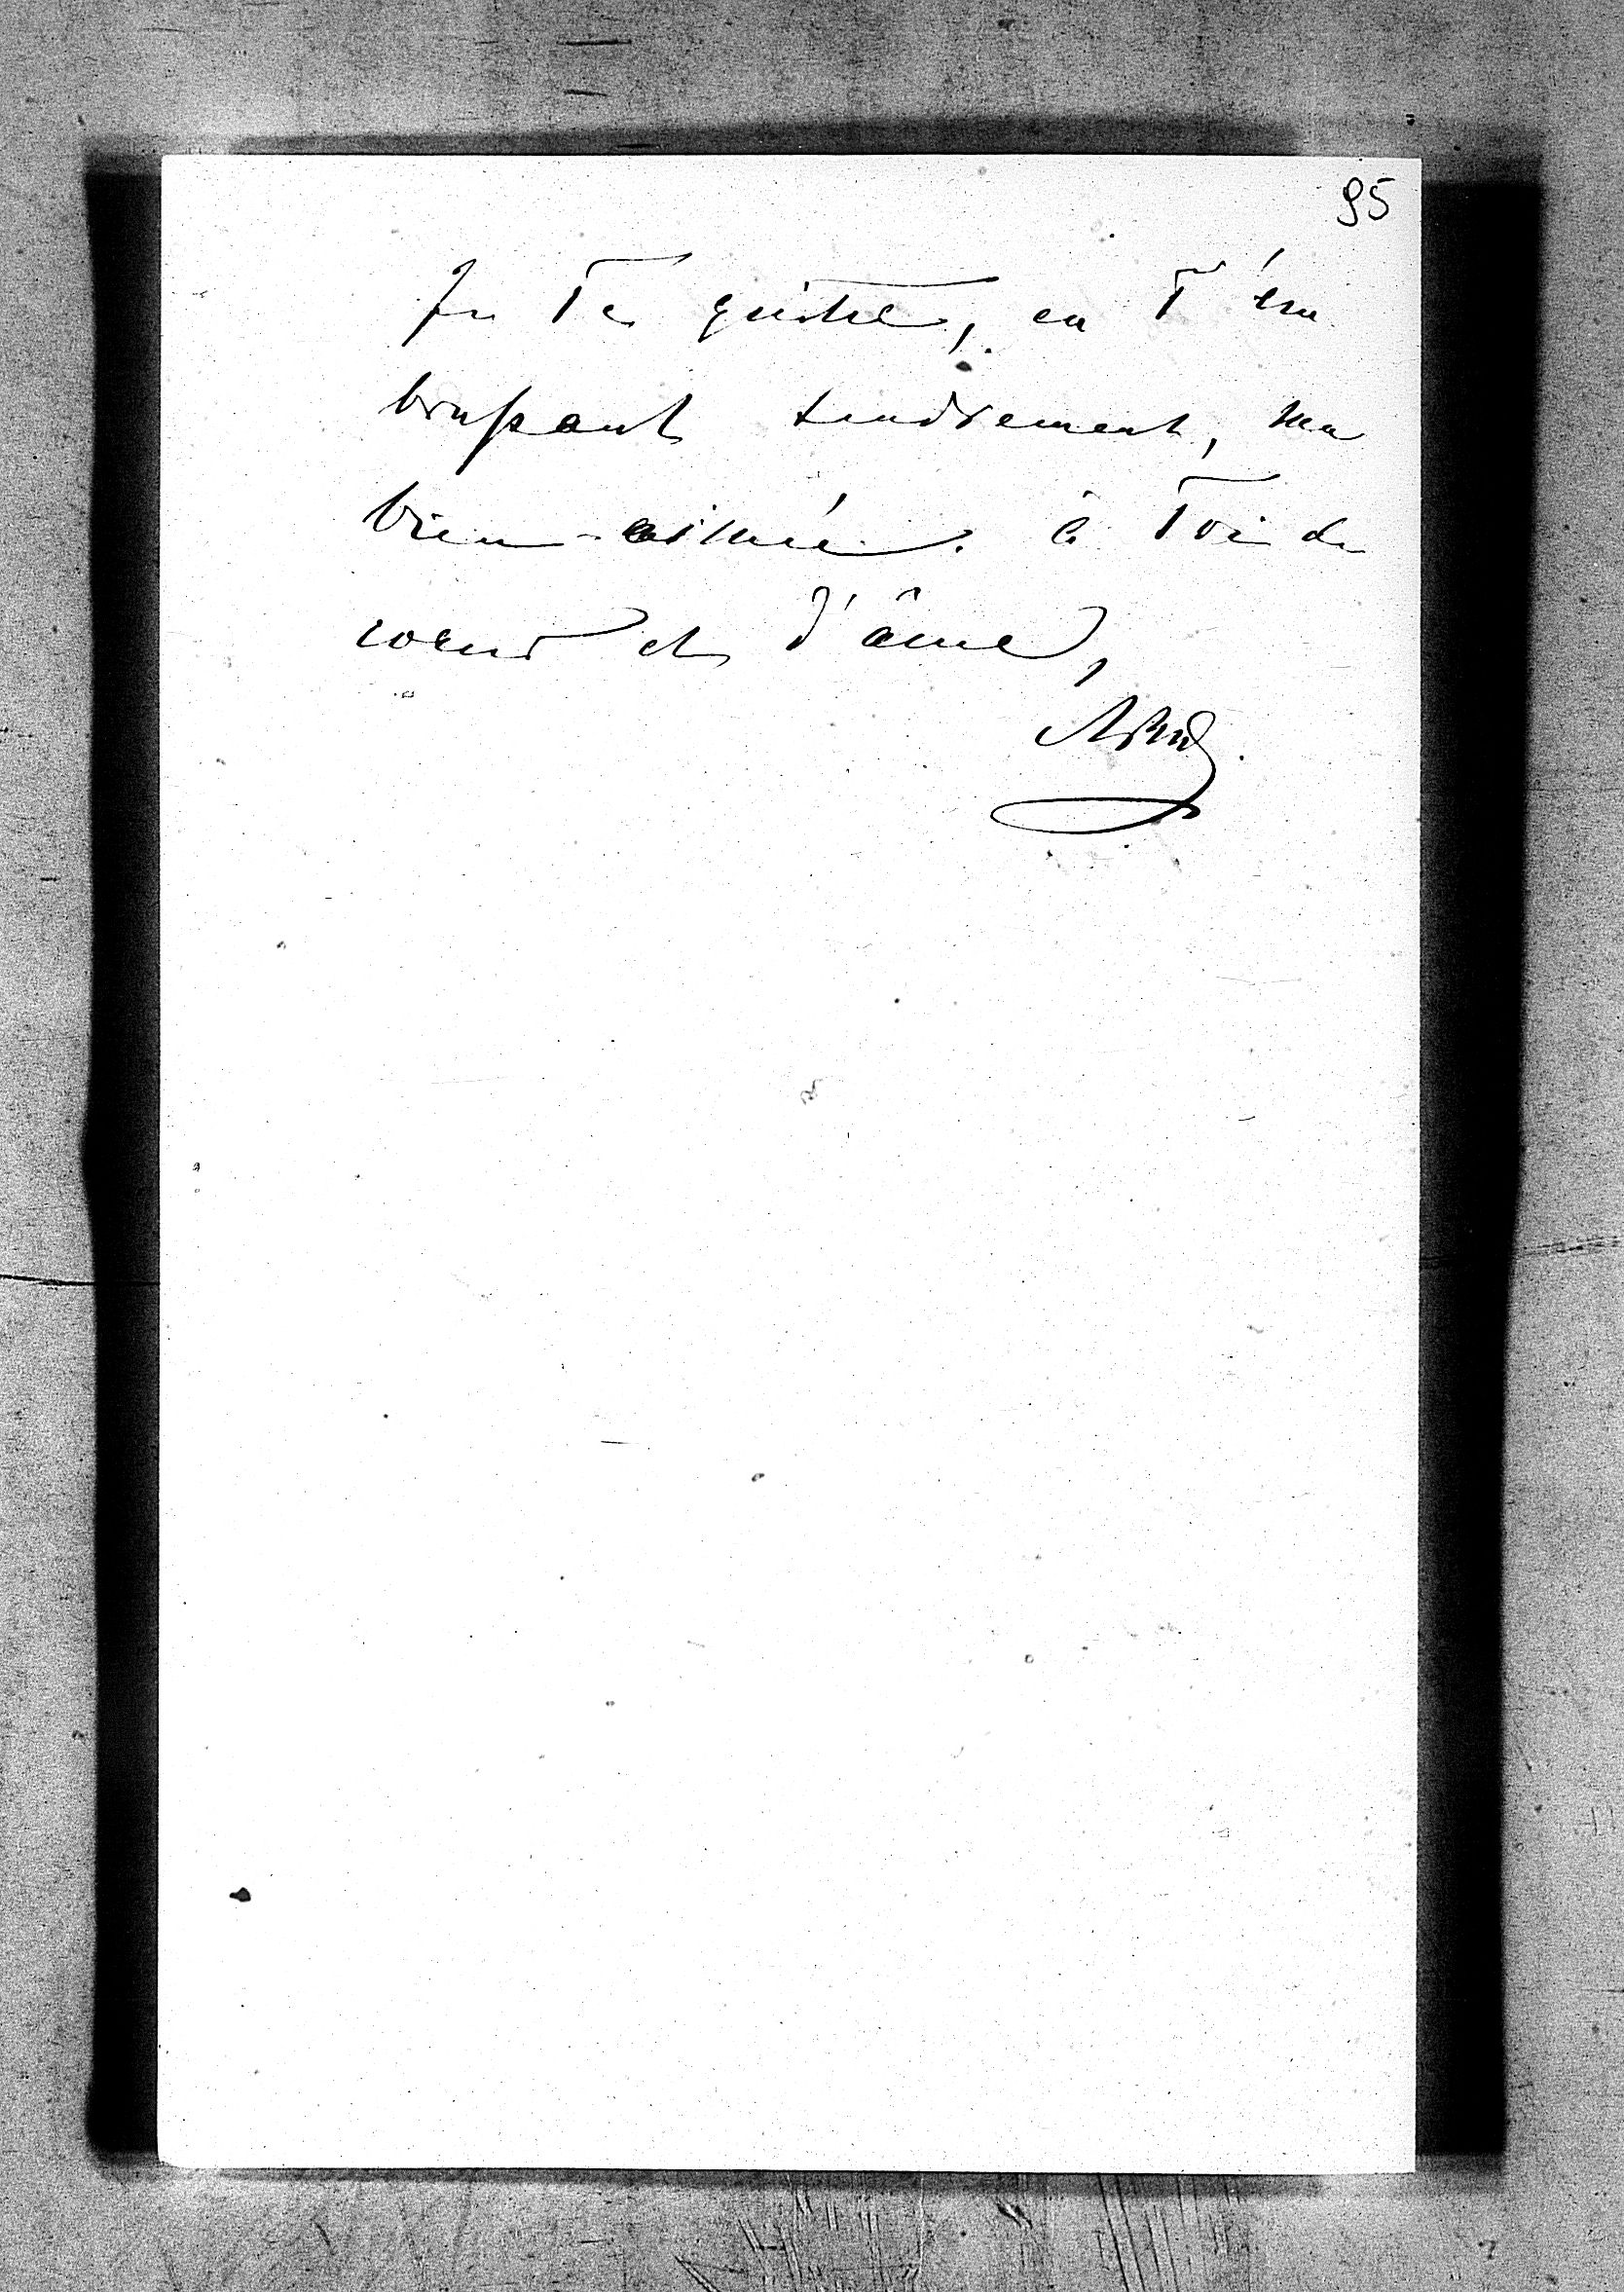 95
Je Te quitte, en T'em
brassant tendrement, ma
bien-aimée. à Toi de
coeur et d'âme,